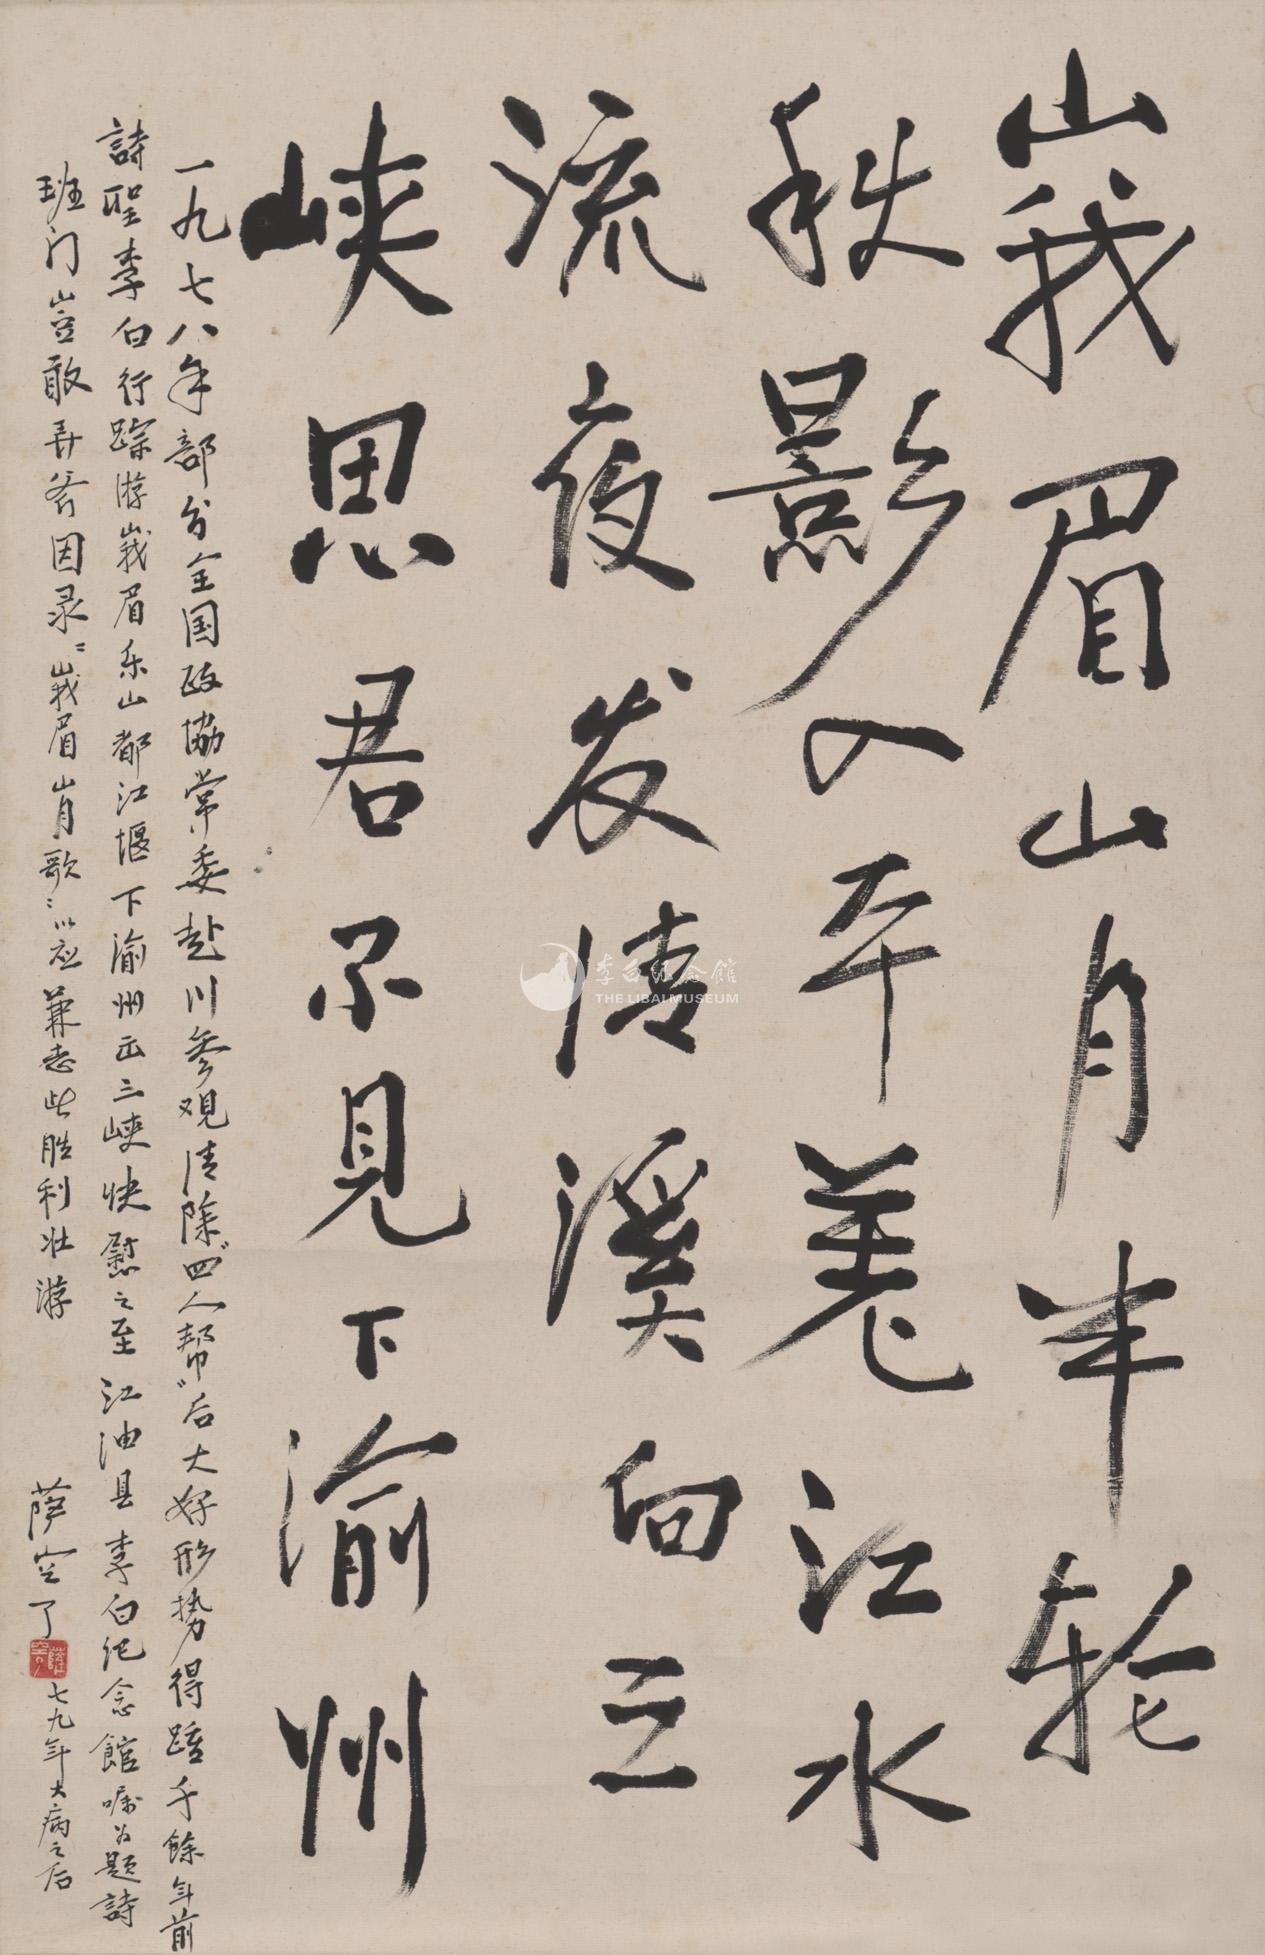 峩眉山月半轮
秋影入平羌江水
流夜发清溪向三
峡思君不见下渝州
一九七八年部分全国政协常委赴川参观清除“四人帮”后大好形势得踏千馀年前
詩聖李白行踪游峩眉乐山都江堰下渝州出三峡快慰之至江油县李白纪念館嘱为题詩
班门岂敢弄斧因录“峩眉山月歌”以应兼志此胜利壮游
萨空了
七九年大病之后
李白纪念館
THE LIBAI MUSEUM